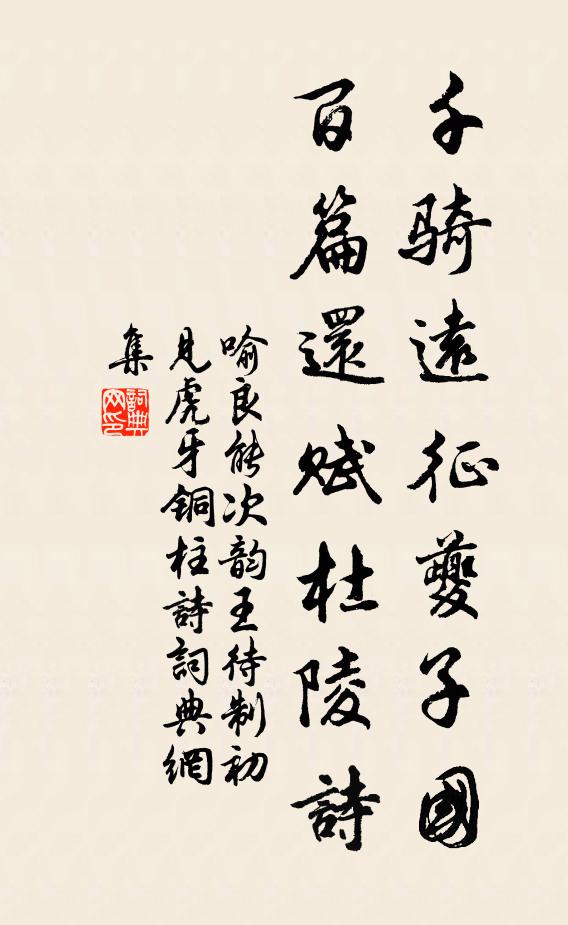 千騎遠征夔子國
百篇還賦杜陵詩
喻良能次韵王待制初
見虎牙銅柱詩詞典網
集
詞典
网印